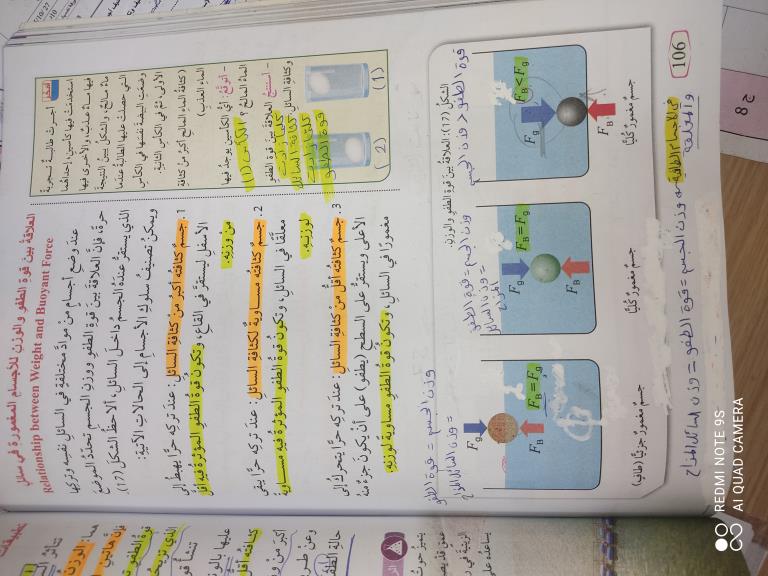 العلاقة بين قوة الطفو والوزن للأجسام المغمورة في سائل
Relationship between Weight and Buoyant Force
عند وضع أجسام من مواد مختلفة في السائل نفسه وتركها
حرة، فإن العلاقة بين قوة الطفو ووزن الجسم تحدد الموضع
الذي يستقر عنده الجسم داخل السائل، ألاحظ الشكل (17).
ويمكن تصنيف سلوك الأجسام إلى الحالات الآتية:
1. جسم كثافته أكبر من كثافة السائل: عند تركه حرًّا يهبط إلى
الأسفل ليستقر في القاع، وتكون قوة الطفو المؤثرة فيه أقل
من وزنه.
2. جسم كثافته مساوية لكثافة السائل: عند تركه حرًّا يبقى
معلقًا في السائل، وتكون قوة الطفو المؤثرة فيه مساوية
لوزنه.
3. جسم كثافته أقل من كثافة السائل: عند تركه حرًّا يتحرك إلى
الأعلى ويستقر على السطح (يطفو) على أن يكون جزء منه
مغمورًا في السائل، وتكون قوة الطفو مساوية لوزنه.
أفكر أجرت طالبة تجربة
استخدمت فيها كأسين، إحداهما
فيها ماء عذب، والأخرى فيها
ماء مالح، والشكل يبين النتيجة
التي حصلت عليها الطالبة عندما
وضعت البيضة نفسها في الكأس
الأولى، ثم في الكأس الثانية.
(كثافة الماء المالح أكبر من كثافة
الماء العذب)
- أتوقع: أي الكأسين يوجد فيها
الماء المالح؟ الكأس (1)
- أستنتج العلاقة بين قوة الطفو
وكثافة السائل.
كلما زادت
كثافة السائل
زادت
قوة الطفو
(1)
(2)
وزن الجسم = قوة الطفو
= وزن السائل المزاح
وزن الجسم = قوة الطفو
= وزن السائل
المزاح
قوة الطفو < وزن الجسم
الشكل (17): العلاقة بين قوة الطفو والوزن.
Fg
FB = Fg
FB
جسم مغمور جزئيًّا (طافٍ)
Fg
FB = Fg
FB
جسم مغمور كليًّا
FB < Fg
Fg
FB
جسم مغمور كليًّا
في الأجسام الطافية
والمعلقة
وزن الجسم = قوة الطفو = وزن السائل المزاح
106
REDMI NOTE 9S
AI QUAD CAMERA